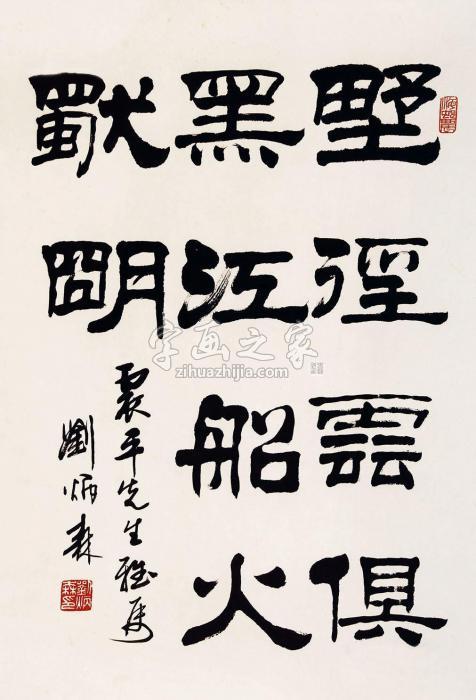 野徑雲俱
黑江船火
獨朙
震平先生雅属
劉炳森
劉炳森印
字画之家
zihuazhijia.com